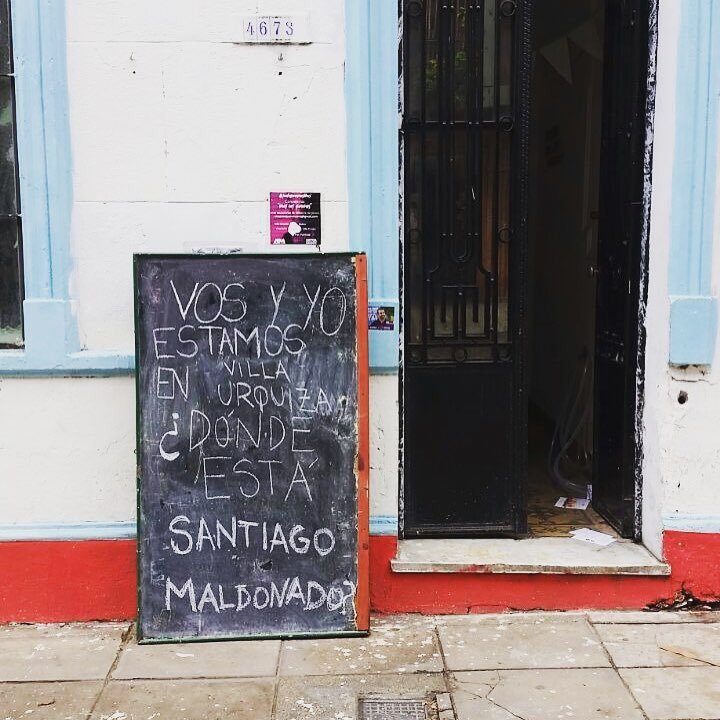 4678
VOS Y YO
ESTAMOS
EN VILLA
URQUIZA
¿DÓNDE
ESTÁ
SANTIAGO
MALDONADO?